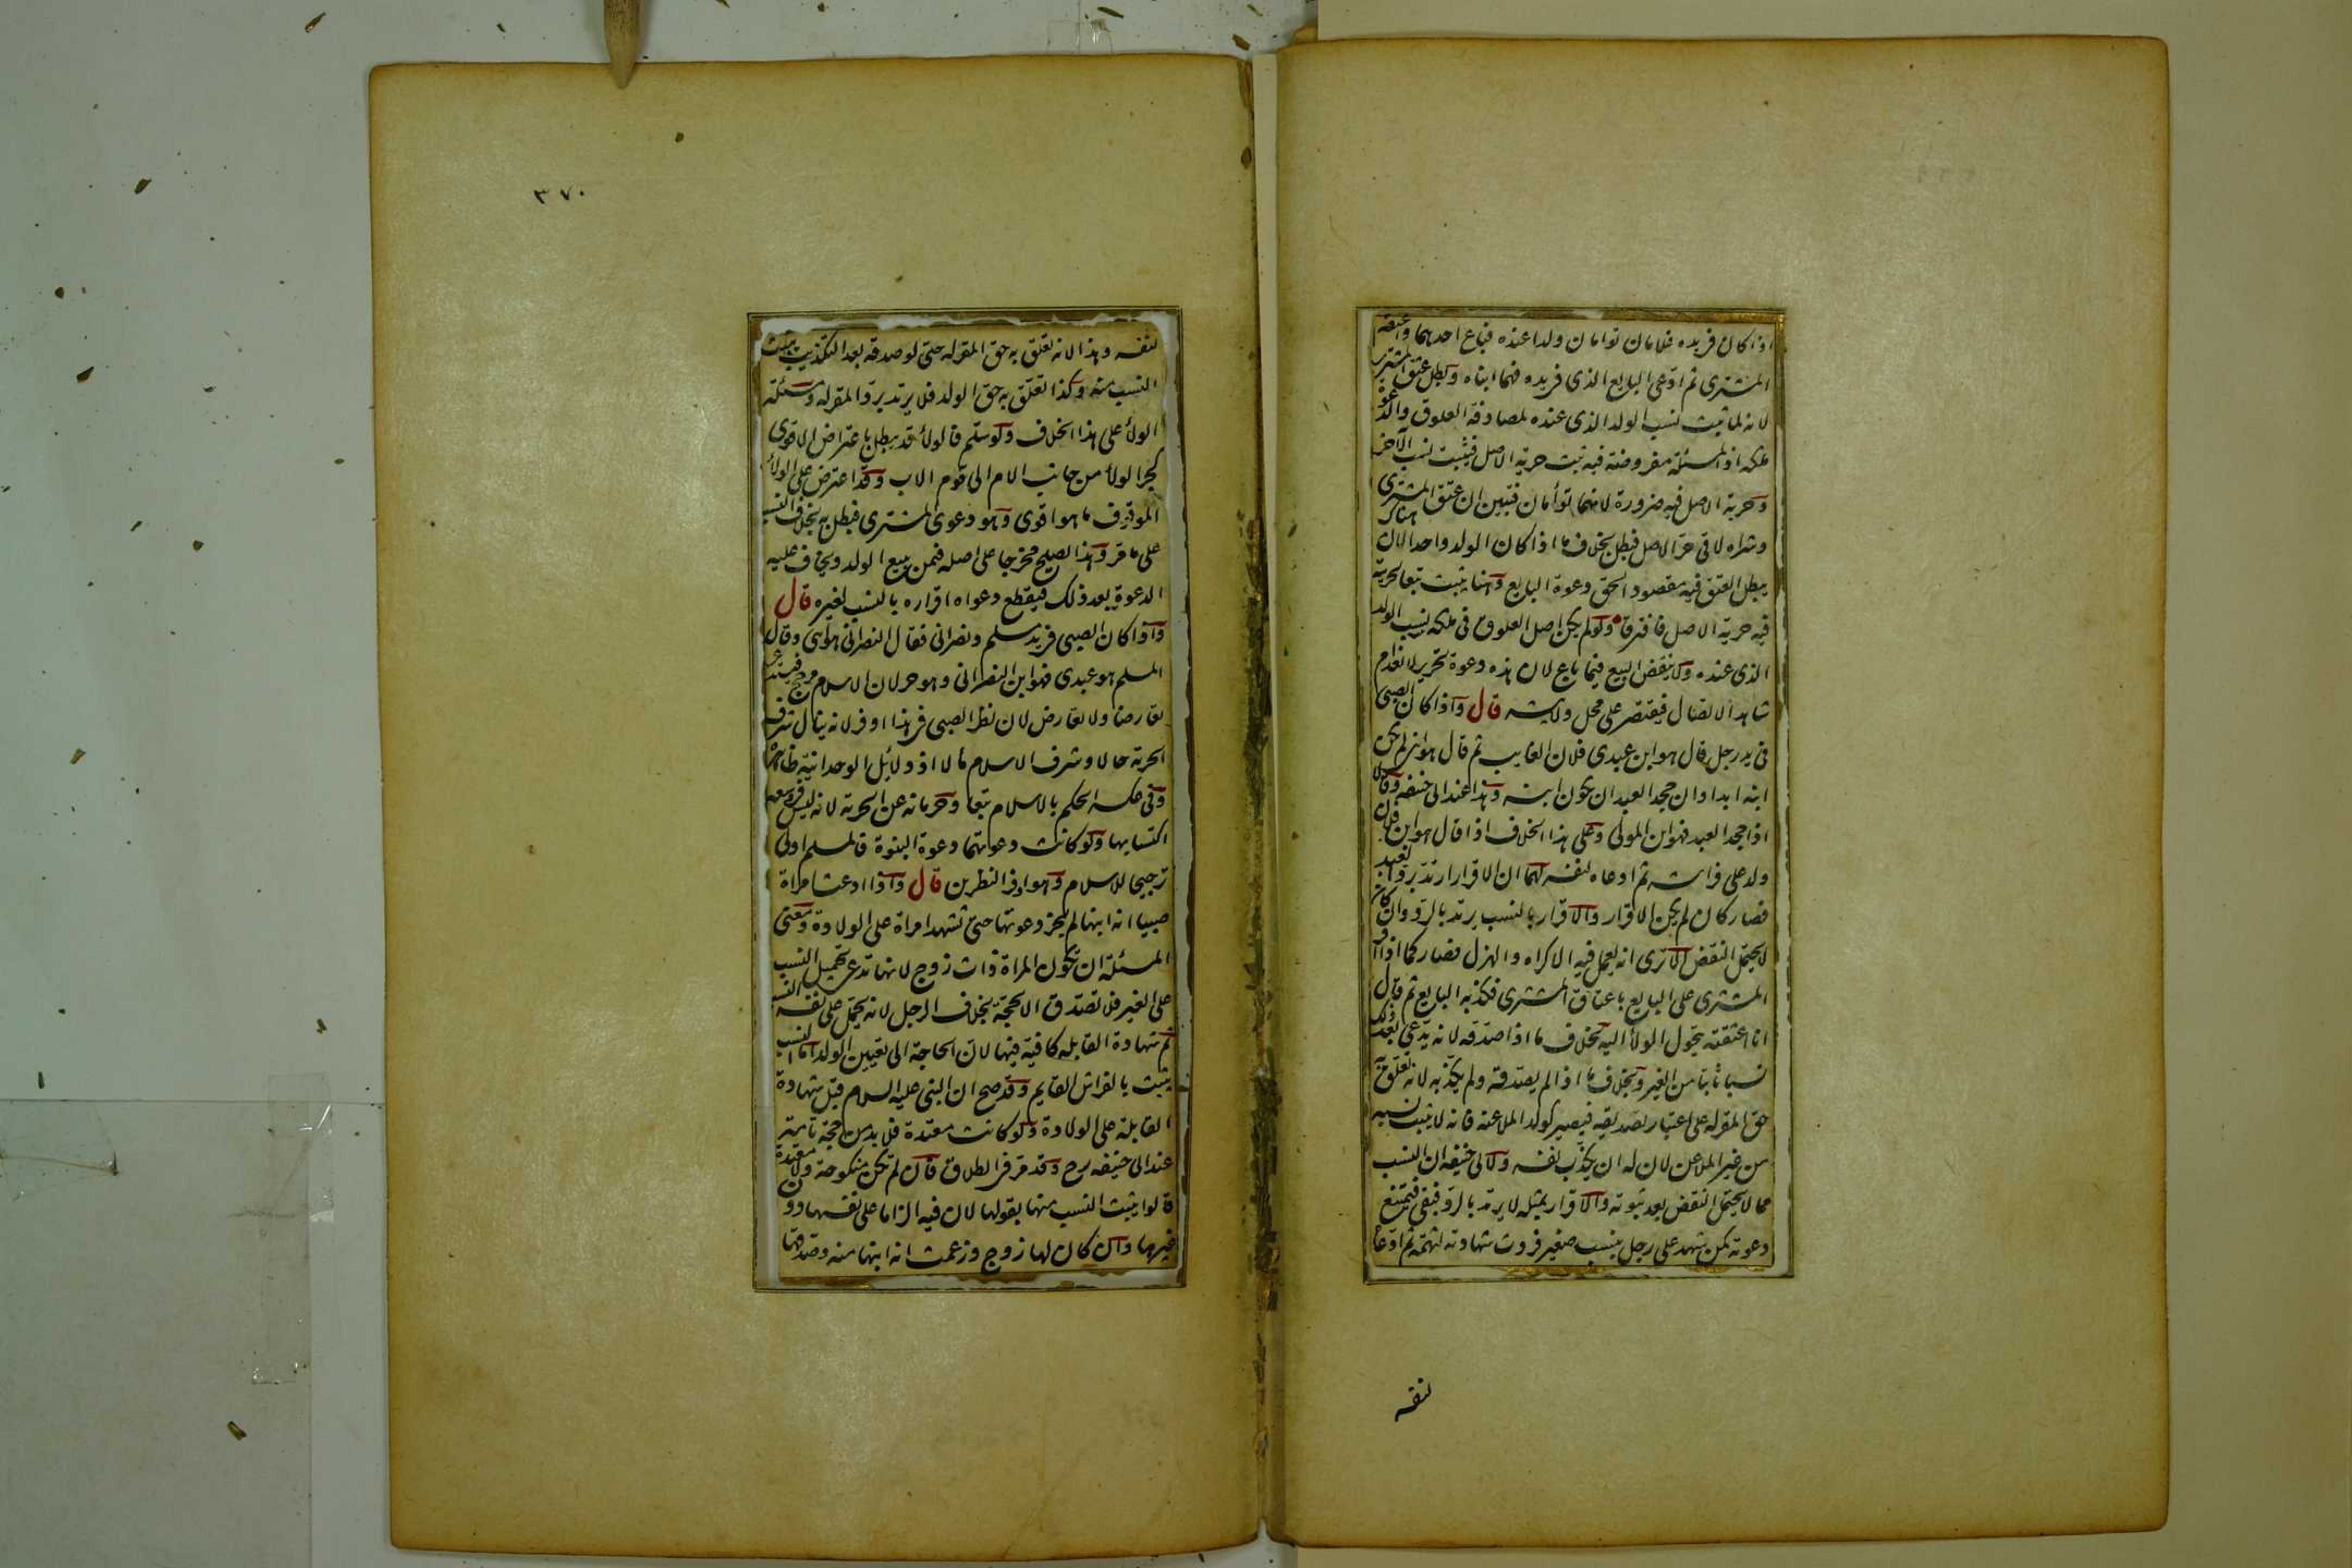 اذا كان فى يده غلامان توامان ولدا عنده فباع احدهما واعتقه
المشترى ثم ادعى البايع الذى فى يده فهما ابناه وبطل عتق المشترى
لانه لما ثبت نسب الولد الذى عنده لمصادفة العلوق والدعوة
ملكه اذ المسئلة مفروضة فيه ثبت حرية الاصل فيثبت نسب الآخر
وحرية الاصل فيه ضرورة لانهما توأمان فتبين ان عتق المشترى
وشراه لاقى حر الاصل فبطل بخلاف ما اذا كان الولد واحدا لان هناك
يبطل العتق فيه مقصودا لحق دعوة البايع وهنا يثبت تبعا لحريته
فيه حرية الاصل فافترقا ولو لم يكن اصل العلوق فى ملكه يثبت نسب الولد
الذى عنده ولا ينقض البيع فيما باع لان هذه دعوة تحرير لانعدام
شاهد الاتصال فيقتصر على محل ولايته قال واذا كان الصبى
فى يد رجل قال هو ابن عبدى فلان الغايب ثم قال هو ابنى لم يكن
ابنه ابدا وان جحد العبد ان يكون ابنه وهذا عند ابى حنيفه وقالا
اذا جحد العبد فهو ابن المولى وعلى هذا الخلاف اذا قال هو ابن فلان
ولد على فراشه ثم ادعاه لنفسه لهما ان الاقرار ارتد برد العبد
فصار كان لم يكن الاقرار والاقرار بالنسب يرتد بالرد وان كان
لا يحتمل النقض الا ترى انه يعمل فيه الاكراه والهزل فصار كما اذا اقر
المشترى على البايع باعتاق المشترى فكذبه البايع ثم قال
انا اعتقته يتحول الولأ اليه بخلاف ما اذا صدقه لانه يدعى بعد ذلك
نسبا ثابتا من الغير وبخلاف ما اذا لم يصدقه ولم يكذبه لانه تعلق به
حق المقر له على اعتبار تصديقه فيصير كولد الملاعنة فانه لا يثبت نسبه
من غير الملاعن لان له ان يكذب نفسه ولابى حنيفه ان النسب
مما لا يحتمل النقض بعد ثبوته والاقرار بمثله لا يرتد بالرد فبقى فيمتنع
دعوته كمن شهد على رجل بنسب صغير فردت شهادته لتهمة ثم ادعاه
لنفسه
٣٧٠
لنفسه وهذا لانه تعلق به حق المقر له حتى لو صدقه بعد التكذيب يثبت
النسب منه وكذا تعلق به حق الولد فلا يرتد برد المقر له ومسئلة
الولأ على هذا الخلاف ولو سلم فالولأ قد يبطل باعتراض الاقوى
كجر الولأ من جانب الام الى قوم الاب وقد اعترض على الولأ
الموقوف ما هو اقوى وهو دعوى المشترى فبطل به بخلاف النسب
على ما مر وهذا يصلح مخرجا على اصله فيمن يبيع الولد ويخاف عليه
الدعوة بعد ذلك فيقطع دعواه اقراره بالنسب لغيره قال
واذا كان الصبى فى يد مسلم ونصرانى فقال النصرانى هو ابنى وقال
المسلم هو عبدى فهو ابن النصرانى وهو حر لان الاسلام مرجح فيستدعى
تعارضا ولا تعارض لان نظر الصبى فى هذا اوفر لانه ينال شرف
الحرية حالا وشرف الاسلام مآلا اذ دلائل الوحدانية ظاهرة
وفى عكسه الحكم بالاسلام تبعا وحرمانه عن الحرية لانه ليس فى وسعه
اكتسابها ولو كانت دعوتهما دعوة البنوة فالمسلم اولى
ترجيحا للاسلام وهو اوفر النظرين قال واذا ادعت امراة
صبيا انه ابنها لم يجز دعوتها حتى تشهد امراة على الولادة ومعنى
المسئلة ان تكون المراة ذات زوج لانها تدعى تحميل النسب
على الغير فلا تصدق الا بحجة بخلاف الرجل لانه يحمل على نفسه النسب
ثم شهادة القابله كافية فيها لان الحاجة الى تعيين الولد اما النسب
يثبت بالفراش القايم وقد صح ان النبى عليه السلام قبل شهادة
القابلة على الولادة ولو كانت معتدة فلا بد من حجة تامة
عند ابى حنيفه رح وقد مر فى الطلاق فان لم تكن منكوحة ولا معتدة
قالوا يثبت النسب منها بقولها لان فيه الزاما على نفسها دون
غيرها وان كان لها زوج وزعمت انه ابنها منه وصدقها